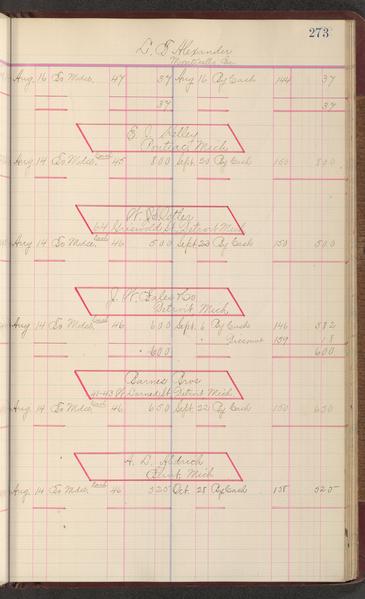 273
L. F. Alexander
Monticello
Aug. 16 To Mdse. 47 37 Aug 16 By Cash 144 37
37 37
E. J. Kelley
Pontiac Mich
Aug 14 To Mdse. Cash 45 8 00 Sept. 20 By Cash 150 8 00
64 Griswold St. Detroit Mich
Aug 14 To Mdse. Cash 46 5 00 Sept. 22 By Cash 150 5 00
J. W. & Co
Detroit, Mich
Aug 14 To Mdse. Cash 46 6 00 Sept. 6 By Cash 146 5 82
Discount 159 18
6 00 6 00
Barnes Bros
41-43 W. St. Detroit Mich.
Aug 14 To Mdse. Cash 46 6 50 Sept. 22 By Cash 150 6 50
A. D. Aldrich
Flint, Mich
Aug 14 To Mdse. Cash 46 5 25 Oct. 28 By Cash 158 5 25